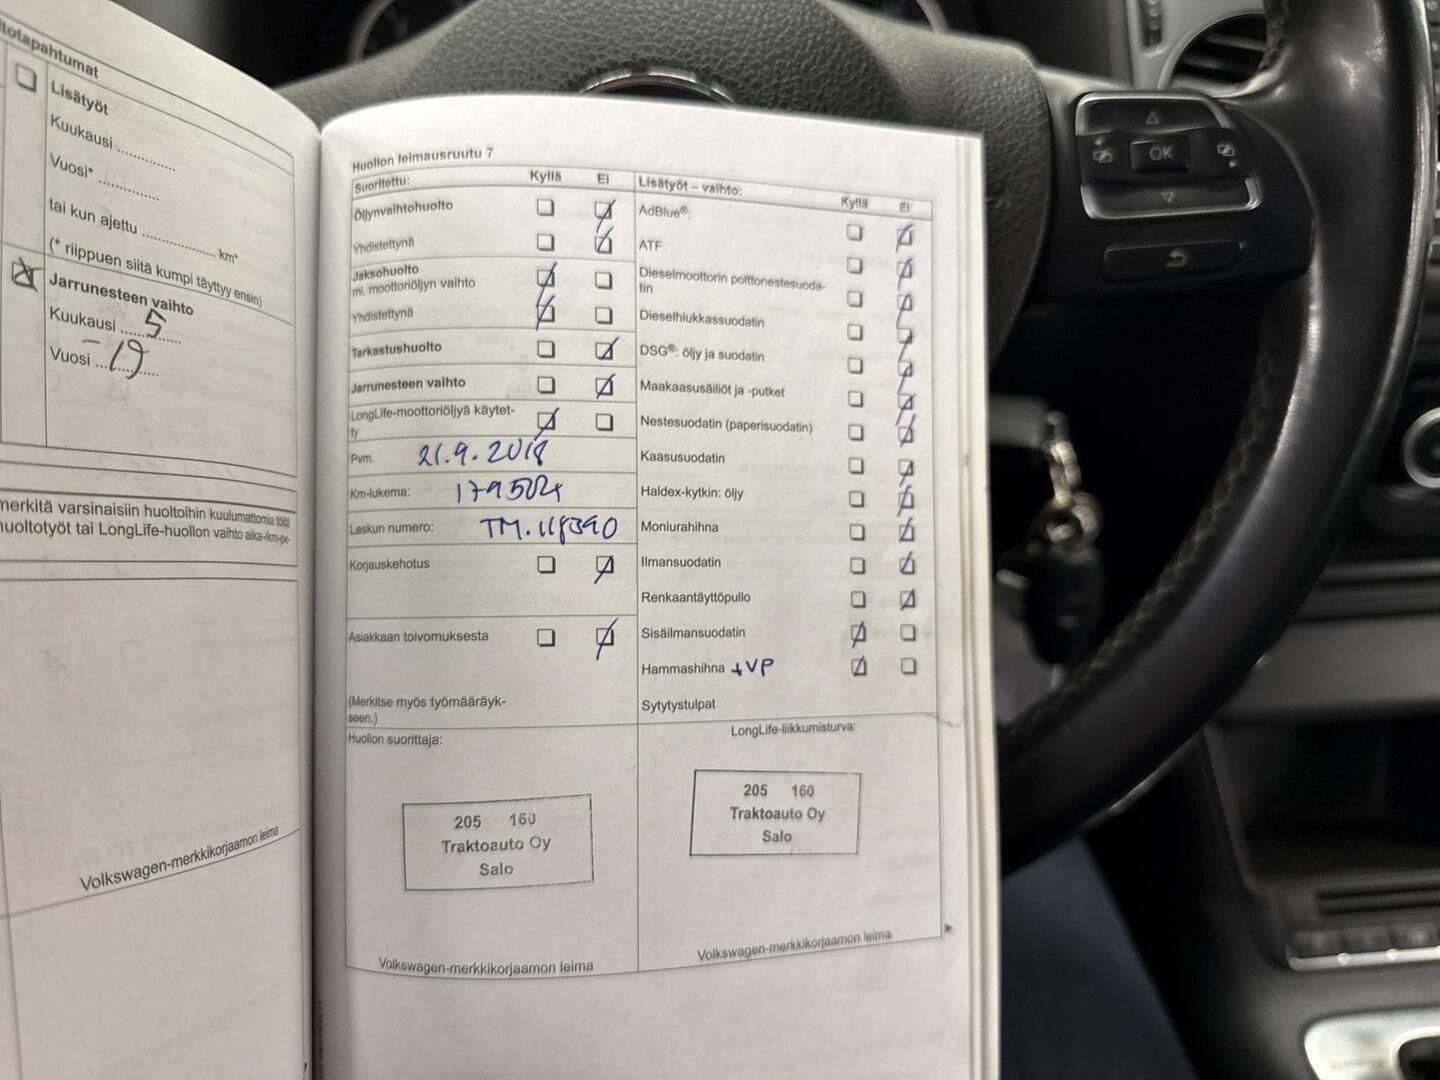 totapahtumat
Lisätyöt
Kuukausi ..............
Vuosi* ..............
tai kun ajettu .................. km*
(* riippuen siitä kumpi täyttyy ensin)
Jarrunesteen vaihto
Kuukausi ....5....
Vuosi ...-19...
merkitä varsinaisiin huoltoihin kuulumattomia töitä
huoltotyöt tai LongLife-huollon vaihto aika-/km-pe-
Volkswagen-merkkikorjaamon leima
Huollon leimausruutu 7
Suoritettu: Kyllä Ei
Öljynvaihtohuolto
Yhdistettynä
Jaksohuolto
ml. moottoriöljyn vaihto
Yhdistettynä
Tarkastushuolto
Jarrunesteen vaihto
LongLife-moottoriöljyä käytet-
ty
Pvm. 21.9.2018
Km-lukema:
Laskun numero:
Korjauskehotus
Asiakkaan toivomuksesta
(Merkitse myös työmääräyk-
seen.)
Huollon suorittaja:
205 160
Traktoauto Oy
Salo
Volkswagen-merkkikorjaamon leima
Lisätyöt – vaihto: Kyllä Ei
AdBlue®:
ATF
Dieselmoottorin polttonestesuoda-
tin
Dieselhiukkassuodatin
DSG®: öljy ja suodatin
Maakaasusäiliöt ja -putket
Nestesuodatin (paperisuodatin)
Kaasusuodatin
Haldex-kytkin: öljy
Moniurahihna
Ilmansuodatin
Renkaantäyttöpullo
Sisäilmansuodatin
Hammashihna +VP
Sytytystulpat
LongLife-liikkumisturva:
205 160
Traktoauto Oy
Salo
Volkswagen-merkkikorjaamon leima
OK